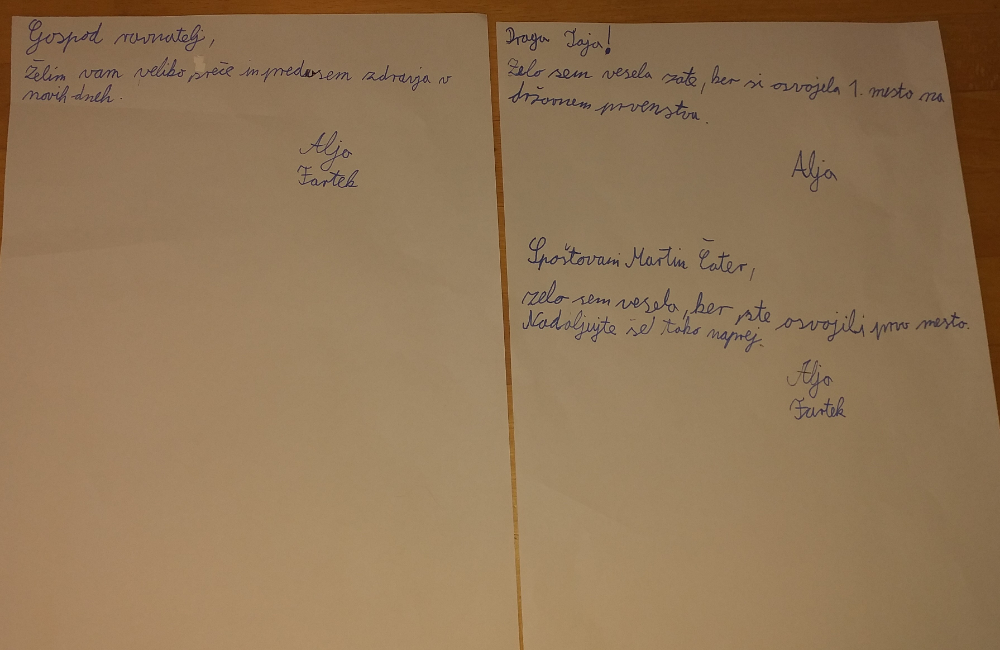 Gospod ravnatelj,
želim vam veliko sreče in predvsem zdravja v
novih dneh.
Alja
Fartek
Draga Taja!
Zelo sem vesela zate, ker si osvojela 1. mesto na
državnem prvenstvu.
Alja
Spoštovani Martin Čater,
zelo sem vesela, ker ste osvojili prvo mesto.
Nadaljujte še tako naprej.
Alja
Fartek